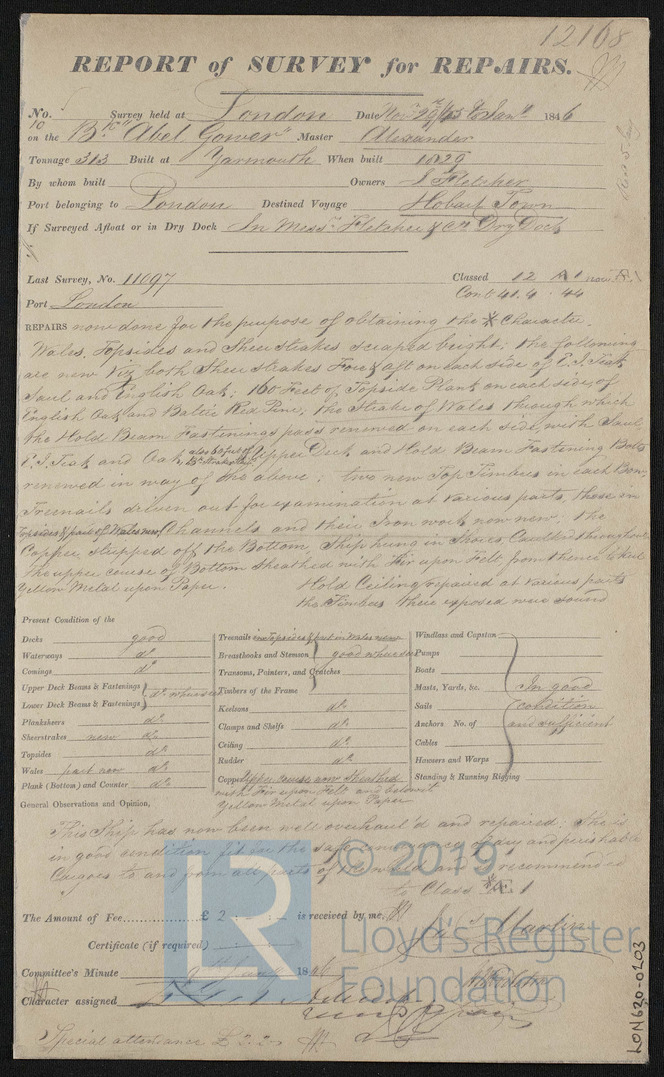 12168
REPORT of SURVEY for REPAIRS.
No. Survey held at London Date Nov 29/45 & Jany 1846
on the Bk "Abel Gower" Master Alexander
Tonnage 313 Built at Yarmouth When built 1829
By whom built Owners J Fletcher
Port belonging to London Destined Voyage Hobart Town
If Surveyed Afloat or in Dry Dock In Messrs Fletcher & Cos Dry Dock
Last Survey, No. 11097 Classed 12 A1 now
Port London Cont 41.4. 44
REPAIRS now done for the purpose of obtaining the * Character.
Wales, Topsides and Sheerstrakes scraped bright: the following
are new Viz both Sheerstrakes Fore & aft on each side of E.I. Teak
Saul and English Oak; 160 Feet of Topside Plank on each side, of
English Oak and Baltic Red Pine, the Strake of Wales through which
the Hold Beam Fastenings pass renewed on each side, with Saul,
E.I. Teak and Oak, also 60 feet of Upper Deck and Hold Beam Fastening Bolts
renewed in way of the above. two new Top Timbers in each Bow,
Treenails driven out for examination at various parts, those in
Topsides & part of Wales new, Channels and their Iron work now new. the
Copper stripped off the Bottom, Ship hung in Shores, Caulked throughout
the upper course of Bottom Sheathed with Fir upon Felt, from thence to Keel
Yellow Metal upon Paper. Hold Ceiling repaired at various parts
the Timbers there exposed were sound
Present Condition of the
Decks good
Waterways do
Comings do
Upper Deck Beams & Fastenings
Lower Deck Beams & Fastenings do where seen
Planksheers do
Sheerstrakes new do
Topsides do
Wales part new do
Plank (Bottom) and Counter do
Treenails in Topsides & part in Wales new
Breasthooks and Stemson good where seen
Transoms, Pointers, and Crutches
Timbers of the Frame
Keelsons do
Clamps and Shelfs do
Ceiling do
Rudder do
Copper Upper course now Sheathed
with Fir upon Felt and below it
Yellow Metal upon Paper
Windlass and Capstan
Pumps
Boats
Masts, Yards, &c. In good
Sails condition
Anchors No. of and sufficient
Cables
Hawsers and Warps
Standing & Running Rigging
General Observations and Opinion,
This Ship has now been well overhaul'd and repaired: She is
in good condition fit for the safe conveyance of dry and perishable
Cargoes to and from all parts of the world and is recommended
to Class *Æ 1
The Amount of Fee £ 2 : - : - is received by me,
Jas Martin
Certificate (if required)
Committee's Minute 1846
Character assigned
Special attendance £ 2.2.0
LR
© 2019
Lloyd's Register
Foundation
LON620-0203